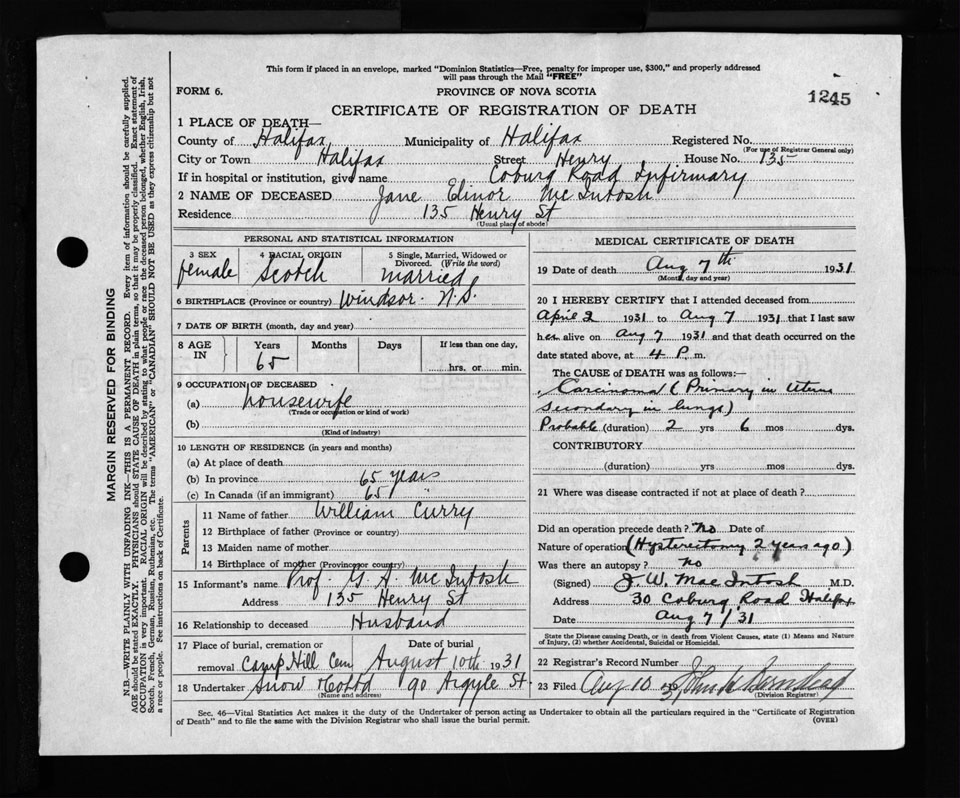 This form if placed in an envelope, marked "Dominion Statistics—Free, penalty for improper use, $300," and properly addressed
will pass through the Mail "FREE"
FORM 6.
PROVINCE OF NOVA SCOTIA
CERTIFICATE OF REGISTRATION OF DEATH
1245
1 PLACE OF DEATH—
County of Halifax Municipality of Halifax Registered No.
(For use of Registrar General only)
City or Town Halifax Street Henry House No. 135
If in hospital or institution, give name Coburg Road Infirmary
2 NAME OF DECEASED Jane Elinor McIntosh
Residence 135 Henry St
(Usual place of abode)
PERSONAL AND STATISTICAL INFORMATION
3 SEX 4 RACIAL ORIGIN 5 Single, Married, Widowed or
Divorced. (Write the word)
female Scotch married
6 BIRTHPLACE (Province or country) Windsor. N.S.
7 DATE OF BIRTH (month, day and year)
8 AGE IN Years Months Days If less than one day,
65 hrs. or min.
9 OCCUPATION OF DECEASED
(a) housewife
(Trade or occupation or kind of work)
(b)
(Kind of industry)
10 LENGTH OF RESIDENCE (in years and months)
(a) At place of death
(b) In province 65 years
(c) In Canada (if an immigrant) 65 "
Parents
11 Name of father William Curry
12 Birthplace of father (Province or country)
13 Maiden name of mother
14 Birthplace of mother (Province or country)
15 Informant's name Prof. G. A. McIntosh
Address 135 Henry St
16 Relationship to deceased Husband
17 Place of burial, cremation or Date of burial
removal Camp Hill Cem August 10th 1931
18 Undertaker Snow & Co Ltd 90 Argyle St.
(Name and address)
MEDICAL CERTIFICATE OF DEATH
19 Date of death Aug 7th 1931
(Month, day and year)
20 I HEREBY CERTIFY that I attended deceased from
April 2 1931 to Aug 7 1931 that I last saw
her alive on Aug 7 1931 and that death occurred on the
date stated above, at 4 P. m.
The CAUSE OF DEATH was as follows:—
Carcinoma (Primary in Uterus
secondary in lungs)
Probable (duration) 2 yrs 6 mos dys.
CONTRIBUTORY
(duration) yrs mos dys.
21 Where was disease contracted if not at place of death?
Did an operation precede death? No Date of
Nature of operation (Hysterectomy 2 years ago)
Was there an autopsy? No
(Signed) J. W. MacIntosh M.D.
Address 30 Coburg Road Halifax
Date Aug 7/31
State the Disease causing Death, or in death from Violent Causes, state (1) Means and Nature
of Injury, (2) whether Accidental, Suicidal or Homicidal.
22 Registrar's Record Number
23 Filed Aug 10 31 John
(Division Registrar)
Sec. 46—Vital Statistics Act makes it the duty of the Undertaker or person acting as Undertaker to obtain all the particulars required in the "Certificate of Registration
of Death" and to file the same with the Division Registrar who shall issue the burial permit.
(OVER)
MARGIN RESERVED FOR BINDING
N.B.—WRITE PLAINLY WITH UNFADING INK—THIS IS A PERMANENT RECORD. Every item of information should be carefully supplied.
AGE should be stated EXACTLY. PHYSICIANS should STATE CAUSE OF DEATH in plain terms, so that it may be properly classified. Exact statement of
OCCUPATION is very important. RACIAL ORIGIN will be described by stating to what people or race the deceased person belonged, whether English, Irish,
Scotch, French, German, Russian, Ruthenian, etc. The terms "AMERICAN" or "CANADIAN" SHOULD NOT BE USED as they express citizenship but not
a race or people. See instructions on back of Certificate.